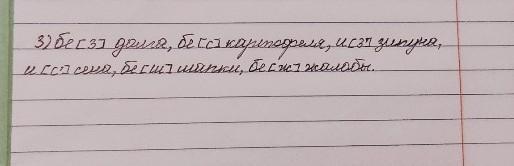 3) бе[з] долга, бе[с] картофеля, и[з'] зипуна,
и[с'] сена, бе[ш] шапки, бе[ж] жалобы.